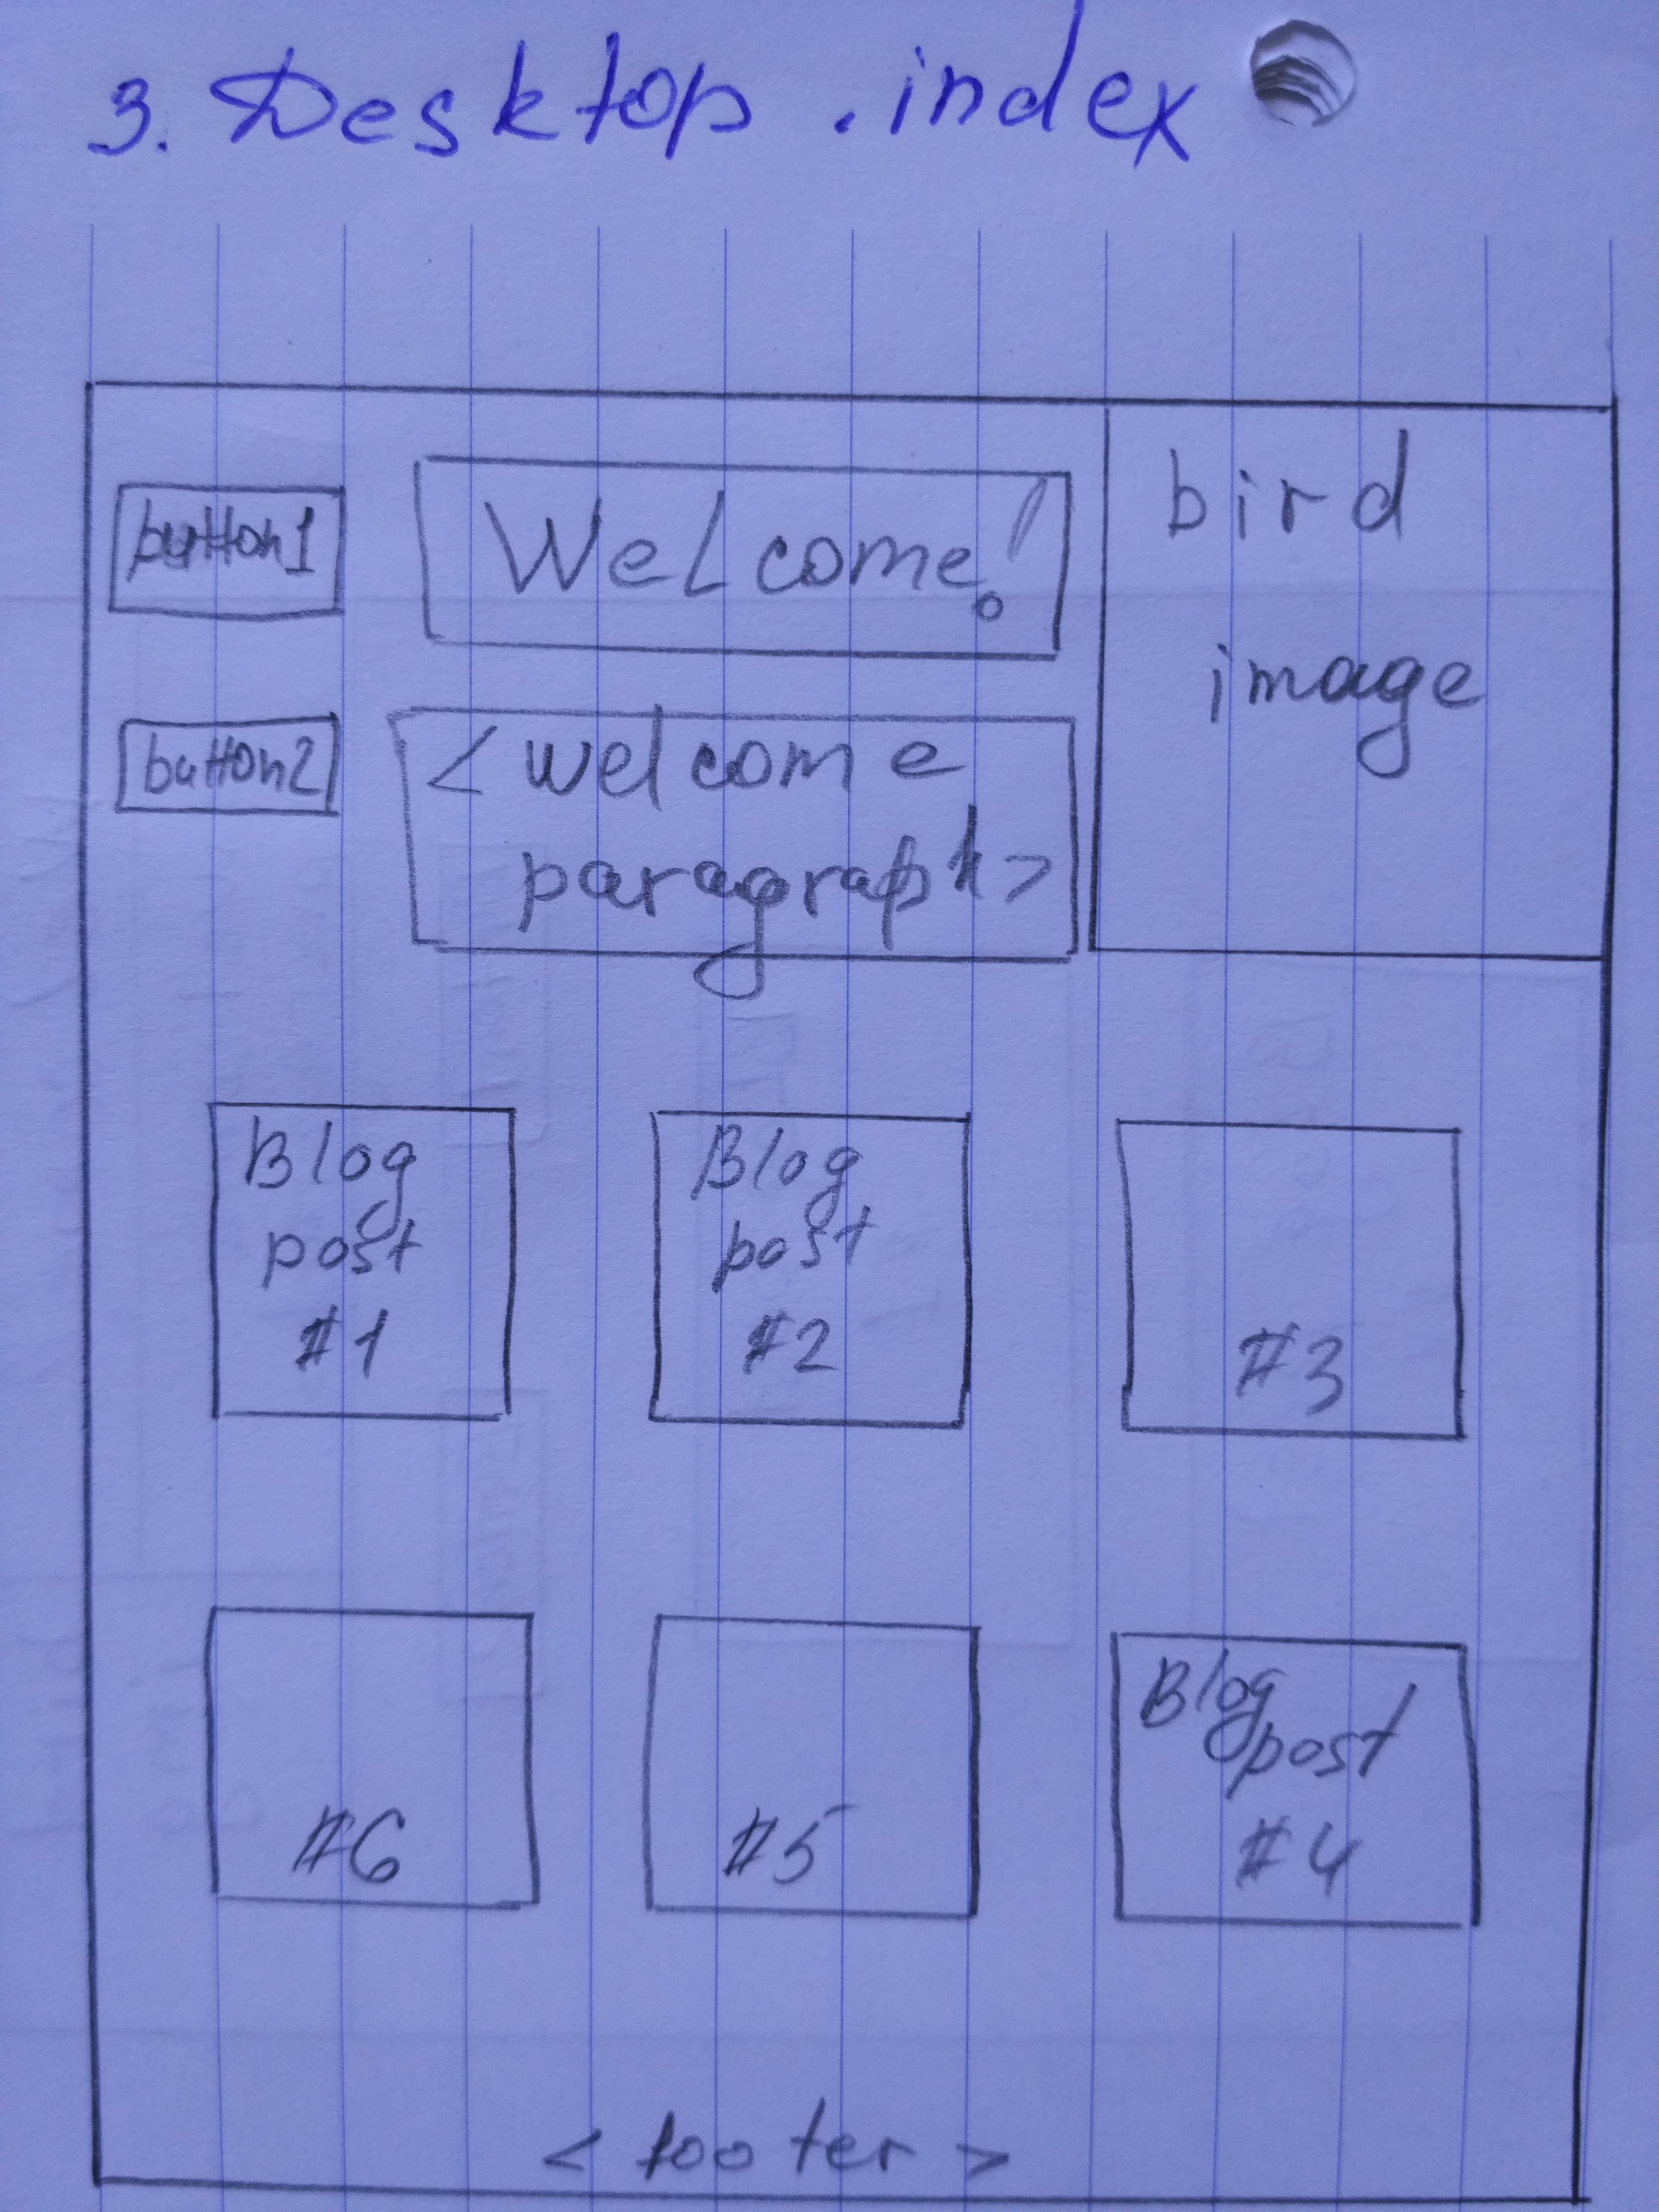 3. Desktop .index
button1
Welcome!
bird
image
button2
<welcome
paragraph>
Blog
post
#1
Blog
post
#2
#3
#6
#5
Blog
post
#4
< footer >